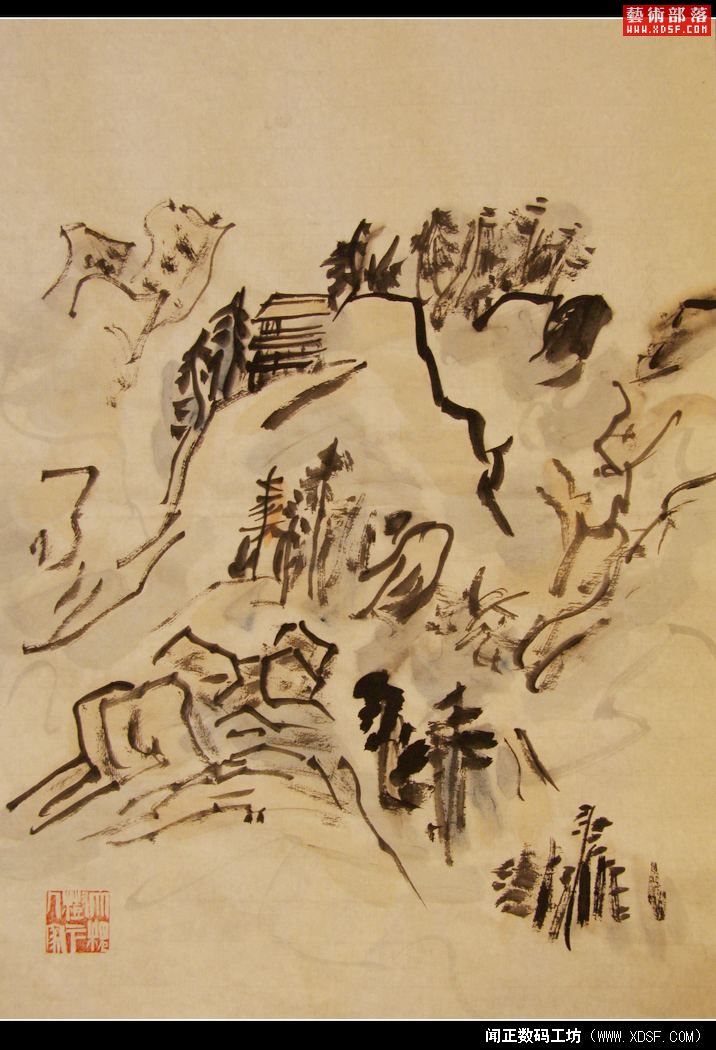 藝術部落
WWW.XDSF.COM
闻正数码工坊（WWW.XDSF.COM）